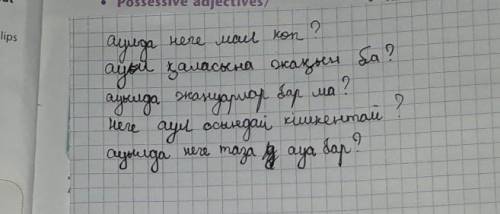 Possessive adjectives/
lips
аулда неге мал көп?
ауыл қаласына жақын ба?
ауылда жануарлар бар ма?
Неге ауыл осындай кішкентай?
ауылда неге таза ауа бар?